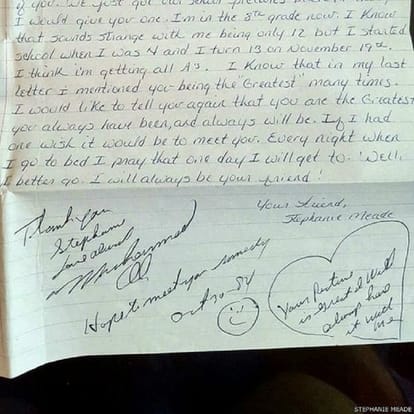 of you. We just got our school pictures
I would give you one. I'm in the 8th grade now. I know
that sounds strange with me being only 12 but I started
school when I was 4 and I turn 13 on November 19th.
I think i'm getting all A's. I know that in my last
letter i mentioned you being the "Greatest" many times.
I would like to tell you again that you are the Greatest
you always have been, and always will be. If I had
one wish it would be to meet you. Every night when
I go to bed I pray that one day I will get to. Well,
I better go. I will always be your friend!
Your friend,
Stephanie Meade
Thank you
Stephani
Love always
Muhammad
Ali
Hope to meet you someday
Oct 20-84
Your Picture
is great I will
always have
it with
me
STEPHANIE MEADE